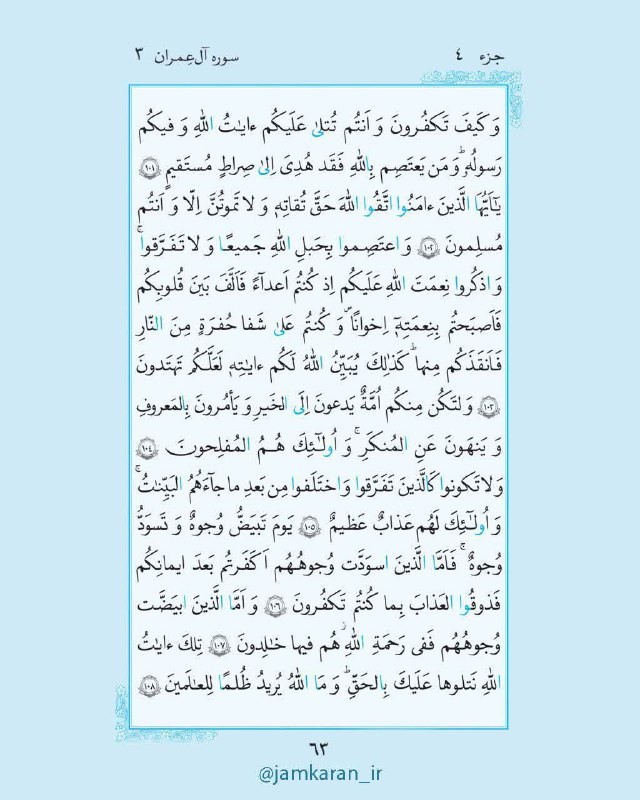 جزء ٤ سوره آل‌عِمران ٣
وَ كَيفَ تَكفُرونَ وَ اَنتُم تُتلىٰ عَلَيكُم ءايٰتُ اللهِ وَ فيكُم
رَسولُهُۥ ۗ وَ مَن يَعتَصِم بِاللهِ فَقَد هُدِىَ اِلىٰ صِراطٍ مُستَقيمٍ ﴿١٠١﴾
يٰۤاَيُّهَا الَّذينَ ءامَنُوا اتَّقُوا اللهَ حَقَّ تُقاتِهٖ وَ لا تَموتُنَّ اِلّا وَ اَنتُم
مُسلِمونَ ﴿١٠٢﴾ وَ اعتَصِموا بِحَبلِ اللهِ جَميعًا وَ لا تَفَرَّقوا ۚ
وَ اذكُروا نِعمَتَ اللهِ عَلَيكُم اِذ كُنتُم اَعدآءً فَاَلَّفَ بَينَ قُلوبِكُم
فَاَصبَحتُم بِنِعمَتِهٖۤ اِخوانًا ۚ وَ كُنتُم عَلىٰ شَفا حُفرَةٍ مِنَ النّارِ
فَاَنقَذَكُم مِنها ۗ كَذٰلِكَ يُبَيِّنُ اللهُ لَكُم ءايٰتِهٖ لَعَلَّكُم تَهتَدونَ
﴿١٠٣﴾ وَلتَكُن مِنكُم اُمَّةٌ يَدعونَ اِلَى الخَيرِ وَ يَأمُرونَ بِالمَعروفِ
وَ يَنهَونَ عَنِ المُنكَرِ ۚ وَ اُولٰۤئِكَ هُمُ المُفلِحونَ ﴿١٠٤﴾
وَ لا تَكونوا كَالَّذينَ تَفَرَّقوا وَ اختَلَفوا مِن بَعدِ ما جآءَهُمُ البَيِّنٰتُ ۚ
وَ اُولٰۤئِكَ لَهُم عَذابٌ عَظيمٌ ﴿١٠٥﴾ يَومَ تَبيَضُّ وُجوهٌ وَ تَسوَدُّ
وُجوهٌ ۚ فَاَمَّا الَّذينَ اسوَدَّت وُجوهُهُم اَكَفَرتُم بَعدَ ايمانِكُم
فَذوقُوا العَذابَ بِما كُنتُم تَكفُرونَ ﴿١٠٦﴾ وَ اَمَّا الَّذينَ ابيَضَّت
وُجوهُهُم فَفى رَحمَةِ اللهِ ۖ هُم فيها خٰلِدونَ ﴿١٠٧﴾ تِلكَ ءايٰتُ
اللهِ نَتلوها عَلَيكَ بِالحَقِّ ۗ وَ مَا اللهُ يُريدُ ظُلمًا لِلعٰلَمينَ ﴿١٠٨﴾
٦٣
@jamkaran_ir